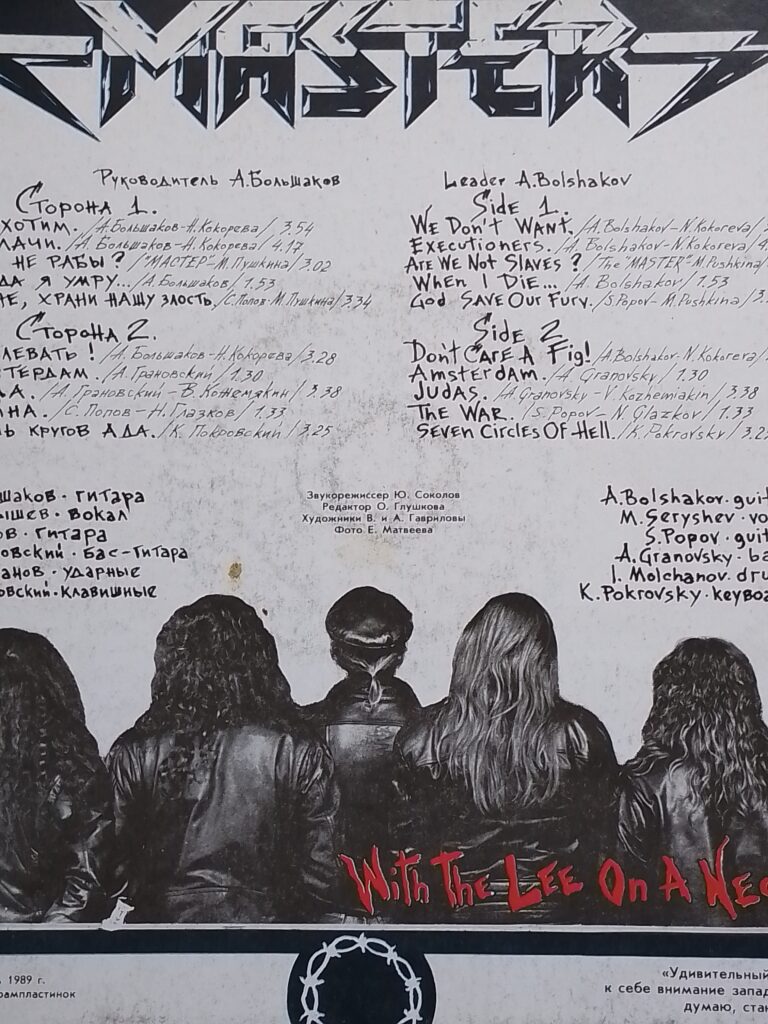 MASTER
Руководитель А.Большаков
Сторона 1.
ХОТИМ. /А.Большаков-Н.Кокорева/ 3.54
ЛАЧИ. /А. Большаков-Н.Кокорева/ 4.17
НЕ РАБЫ? /"МАСТЕР"-М.Пушкина/ 3.02
ДА Я УМРУ... /А.Большаков/ 1.53
НЕ, ХРАНИ НАШУ ЗЛОСТЬ. /С.Попов-М.Пушкина/ 3.34
Сторона 2.
ЛЕВАТЬ! /А. Большаков-Н.Кокорева/ 3.28
СТЕРДАМ. /А.Грановский/ 1.30
ДА. /А.Грановский-В.Кожемякин/ 3.38
НА. /С.Попов-Н.Глазков/ 1.33
Ь КРУГОВ АДА. /К.Покровский/ 3.25
Leader A.Bolshakov
Side 1.
We Don't Want. /A.Bolshakov-N.Kokoreva/
Executioners. /A. Bolshakov-N.Kokoreva/ 4.
Are We Not Slaves? /The "MASTER"-M.Pushkina/
When I Die... /A. Bolshakov/ 1.53
God Save Our Fury. /S.Popov-M.Pushkina/ 3.
Side 2
Don't Care A Fig! /A.Bolshakov-N.Kokoreva/
Amsterdam. /A. Granovsky/ 1.30
Judas. /A.Granovsky-V.Kozhemiakin/ 3.38
The War. /S.Popov-N.Glazkov/ 1.33
Seven Circles Of Hell. /K.Pokrovsky/ 3.2
шаков·гитара
ышев·вокал
ов·гитара
овский·бас-гитара
анов·ударные
овский·клавишные
Звукорежиссер Ю. Соколов
Редактор О. Глушкова
Художники В. и А. Гавриловы
Фото Е. Матвеева
A.Bolshakov·gui
M.Seryshev·vo
S.Popov·gui
A.Granovsky·ba
I. Molchanov·dru
K.Pokrovsky·keyboa
With The Lee On A Nec
1989 г.
рампластинок
«Удивительный
к себе внимание запад
думаю, ста